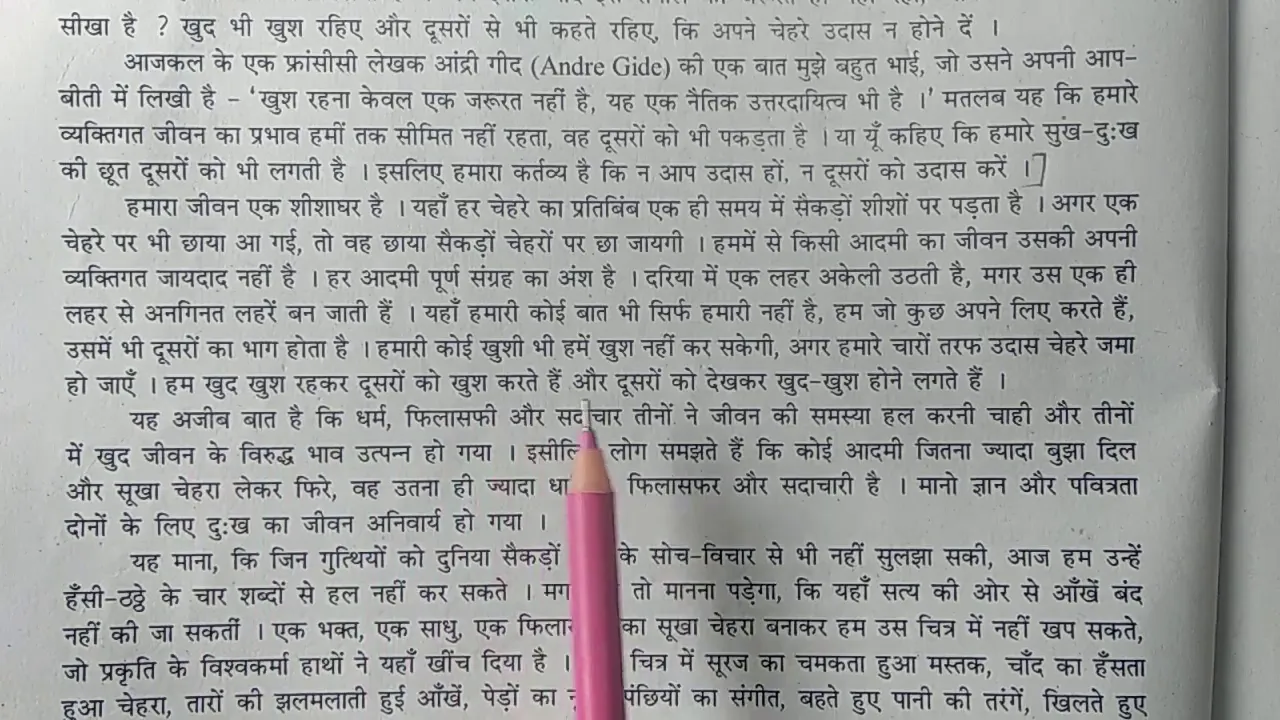 सीखा है ? खुद भी खुश रहिए और दूसरों से भी कहते रहिए, कि अपने चेहरे उदास न होने दें ।
आजकल के एक फ्रांसीसी लेखक आंद्री गीद (Andre Gide) की एक बात मुझे बहुत भाई, जो उसने अपनी आप-
बीती में लिखी है – 'खुश रहना केवल एक जरूरत नहीं है, यह एक नैतिक उत्तरदायित्व भी है ।' मतलब यह कि हमारे
व्यक्तिगत जीवन का प्रभाव हमीं तक सीमित नहीं रहता, वह दूसरों को भी पकड़ता है । या यूँ कहिए कि हमारे सुख-दुःख
की छूत दूसरों को भी लगती है । इसलिए हमारा कर्तव्य है कि न आप उदास हों, न दूसरों को उदास करें ।
हमारा जीवन एक शीशाघर है । यहाँ हर चेहरे का प्रतिबिंब एक ही समय में सैकड़ों शीशों पर पड़ता है । अगर एक
चेहरे पर भी छाया आ गई, तो वह छाया सैकड़ों चेहरों पर छा जायगी । हममें से किसी आदमी का जीवन उसकी अपनी
व्यक्तिगत जायदाद नहीं है । हर आदमी पूर्ण संग्रह का अंश है । दरिया में एक लहर अकेली उठती है, मगर उस एक ही
लहर से अनगिनत लहरें बन जाती हैं । यहाँ हमारी कोई बात भी सिर्फ हमारी नहीं है, हम जो कुछ अपने लिए करते हैं,
उसमें भी दूसरों का भाग होता है । हमारी कोई खुशी भी हमें खुश नहीं कर सकेगी, अगर हमारे चारों तरफ उदास चेहरे जमा
हो जाएँ । हम खुद खुश रहकर दूसरों को खुश करते हैं और दूसरों को देखकर खुद-खुश होने लगते हैं ।
यह अजीब बात है कि धर्म, फिलासफी और सदाचार तीनों ने जीवन की समस्या हल करनी चाही और तीनों
में खुद जीवन के विरुद्ध भाव उत्पन्न हो गया । लोग समझते हैं कि कोई आदमी जितना ज्यादा बुझा दिल
और सूखा चेहरा लेकर फिरे, वह उतना ही ज्यादा फिलासफर और सदाचारी है । मानो ज्ञान और पवित्रता
दोनों के लिए दुःख का जीवन अनिवार्य हो गया ।
यह माना, कि जिन गुत्थियों को दुनिया सैकड़ों के सोच-विचार से भी नहीं सुलझा सकी, आज हम उन्हें
हँसी-ठठ्ठे के चार शब्दों से हल नहीं कर सकते । तो मानना पड़ेगा, कि यहाँ सत्य की ओर से आँखें बंद
नहीं की जा सकतीं । एक भक्त, एक साधु, एक का सूखा चेहरा बनाकर हम उस चित्र में नहीं खप सकते,
जो प्रकृति के विश्वकर्मा हाथों ने यहाँ खींच दिया है । चित्र में सूरज का चमकता हुआ मस्तक, चाँद का हँसता
हुआ चेहरा, तारों की झलमलाती हुई आँखें, पेड़ों का पंछियों का संगीत, बहते हुए पानी की तरंगें, खिलते हुए